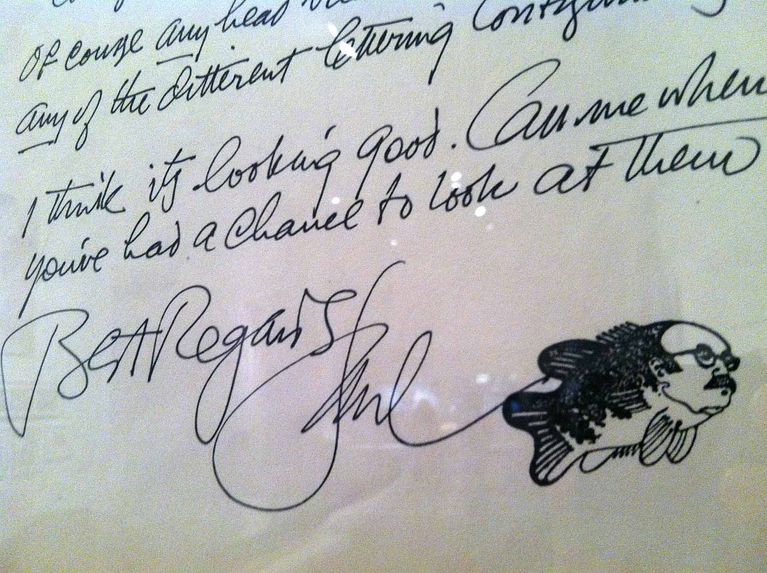 of course any head
any of the different lettering
I think its looking good. Call me when
you've had a chance to look at them
Best Regards
Paul